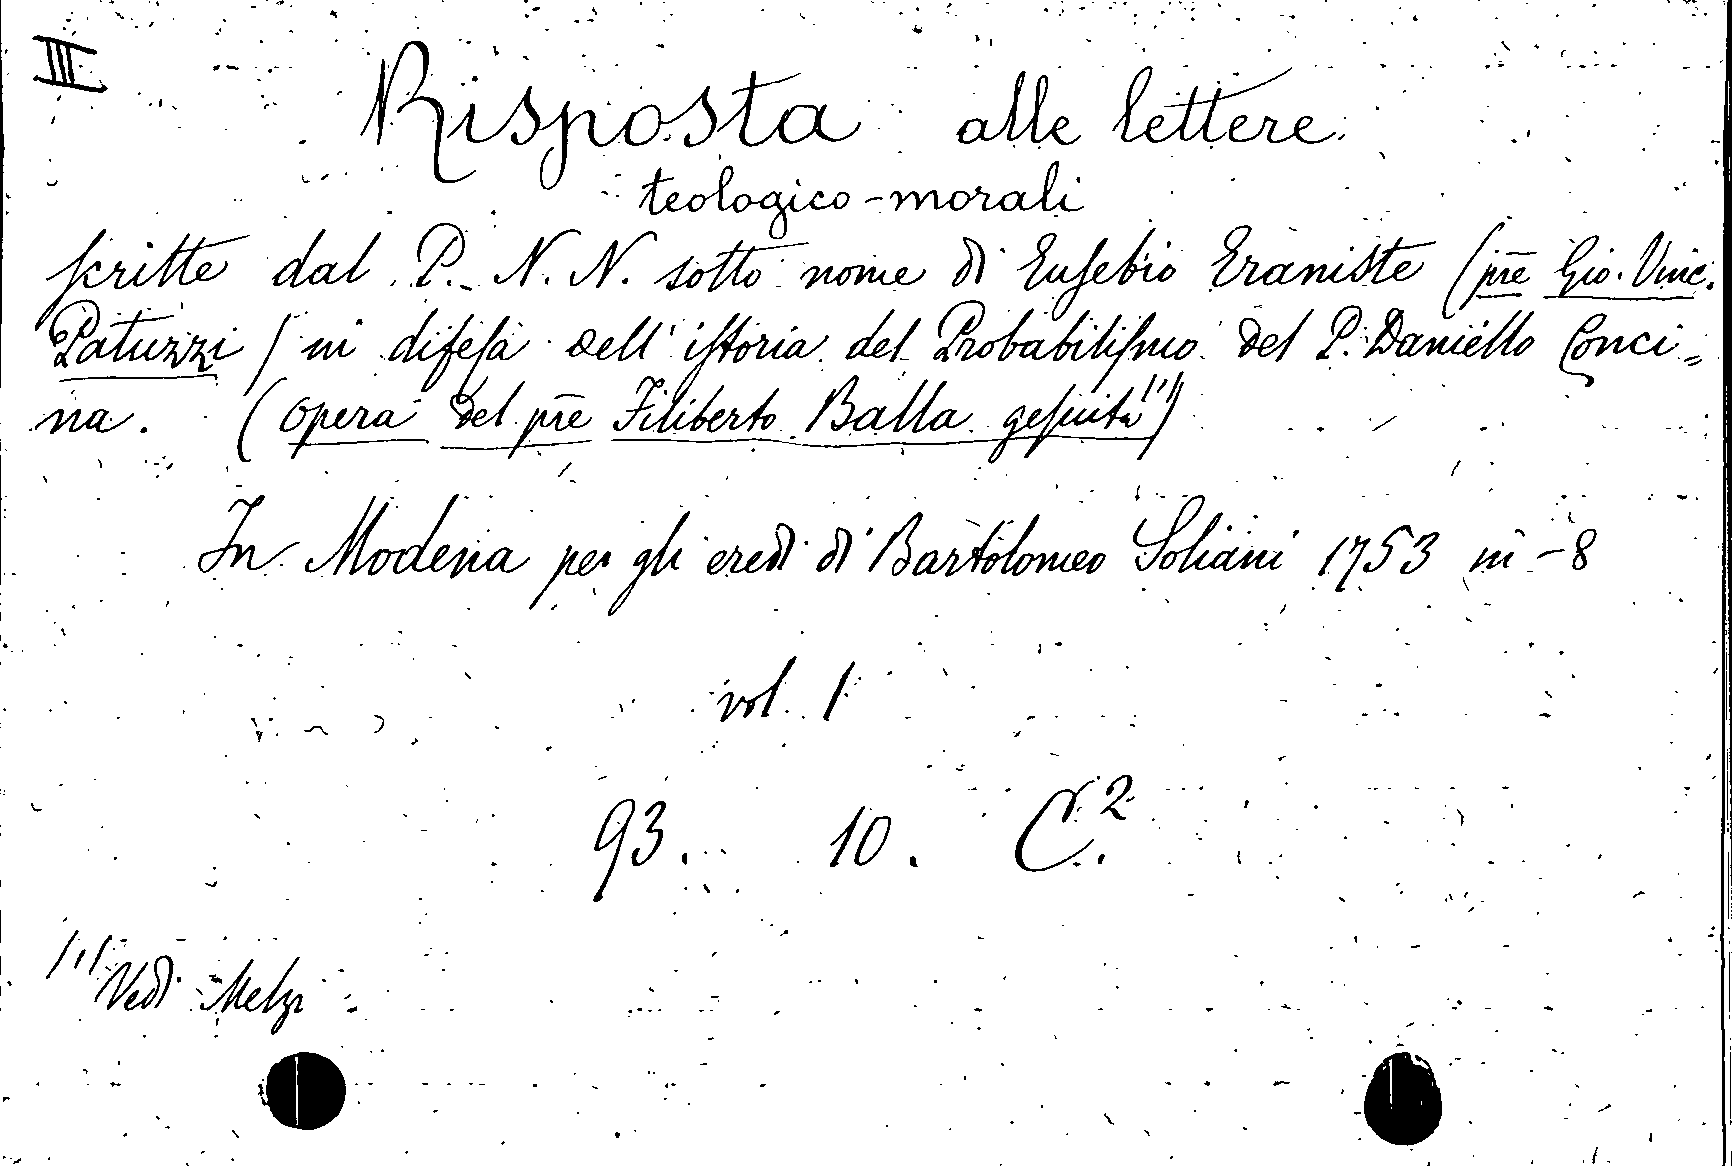 III
Risposta alle lettere
teologico-morali
scritte dal P. N. N. sotto nome di Eusebio Eraniste (pre Gio. Vinc.
Patuzzi) in difesa dell'istoria del Probabilismo del P. Daniello Conci=
na. (opera del pre Filiberto Balla gesuita (1))
In Modena per gli eredi di Bartolomeo Soliani 1753 in-8
vol. 1
93. 10. C.2
(1) Vedi Melzi